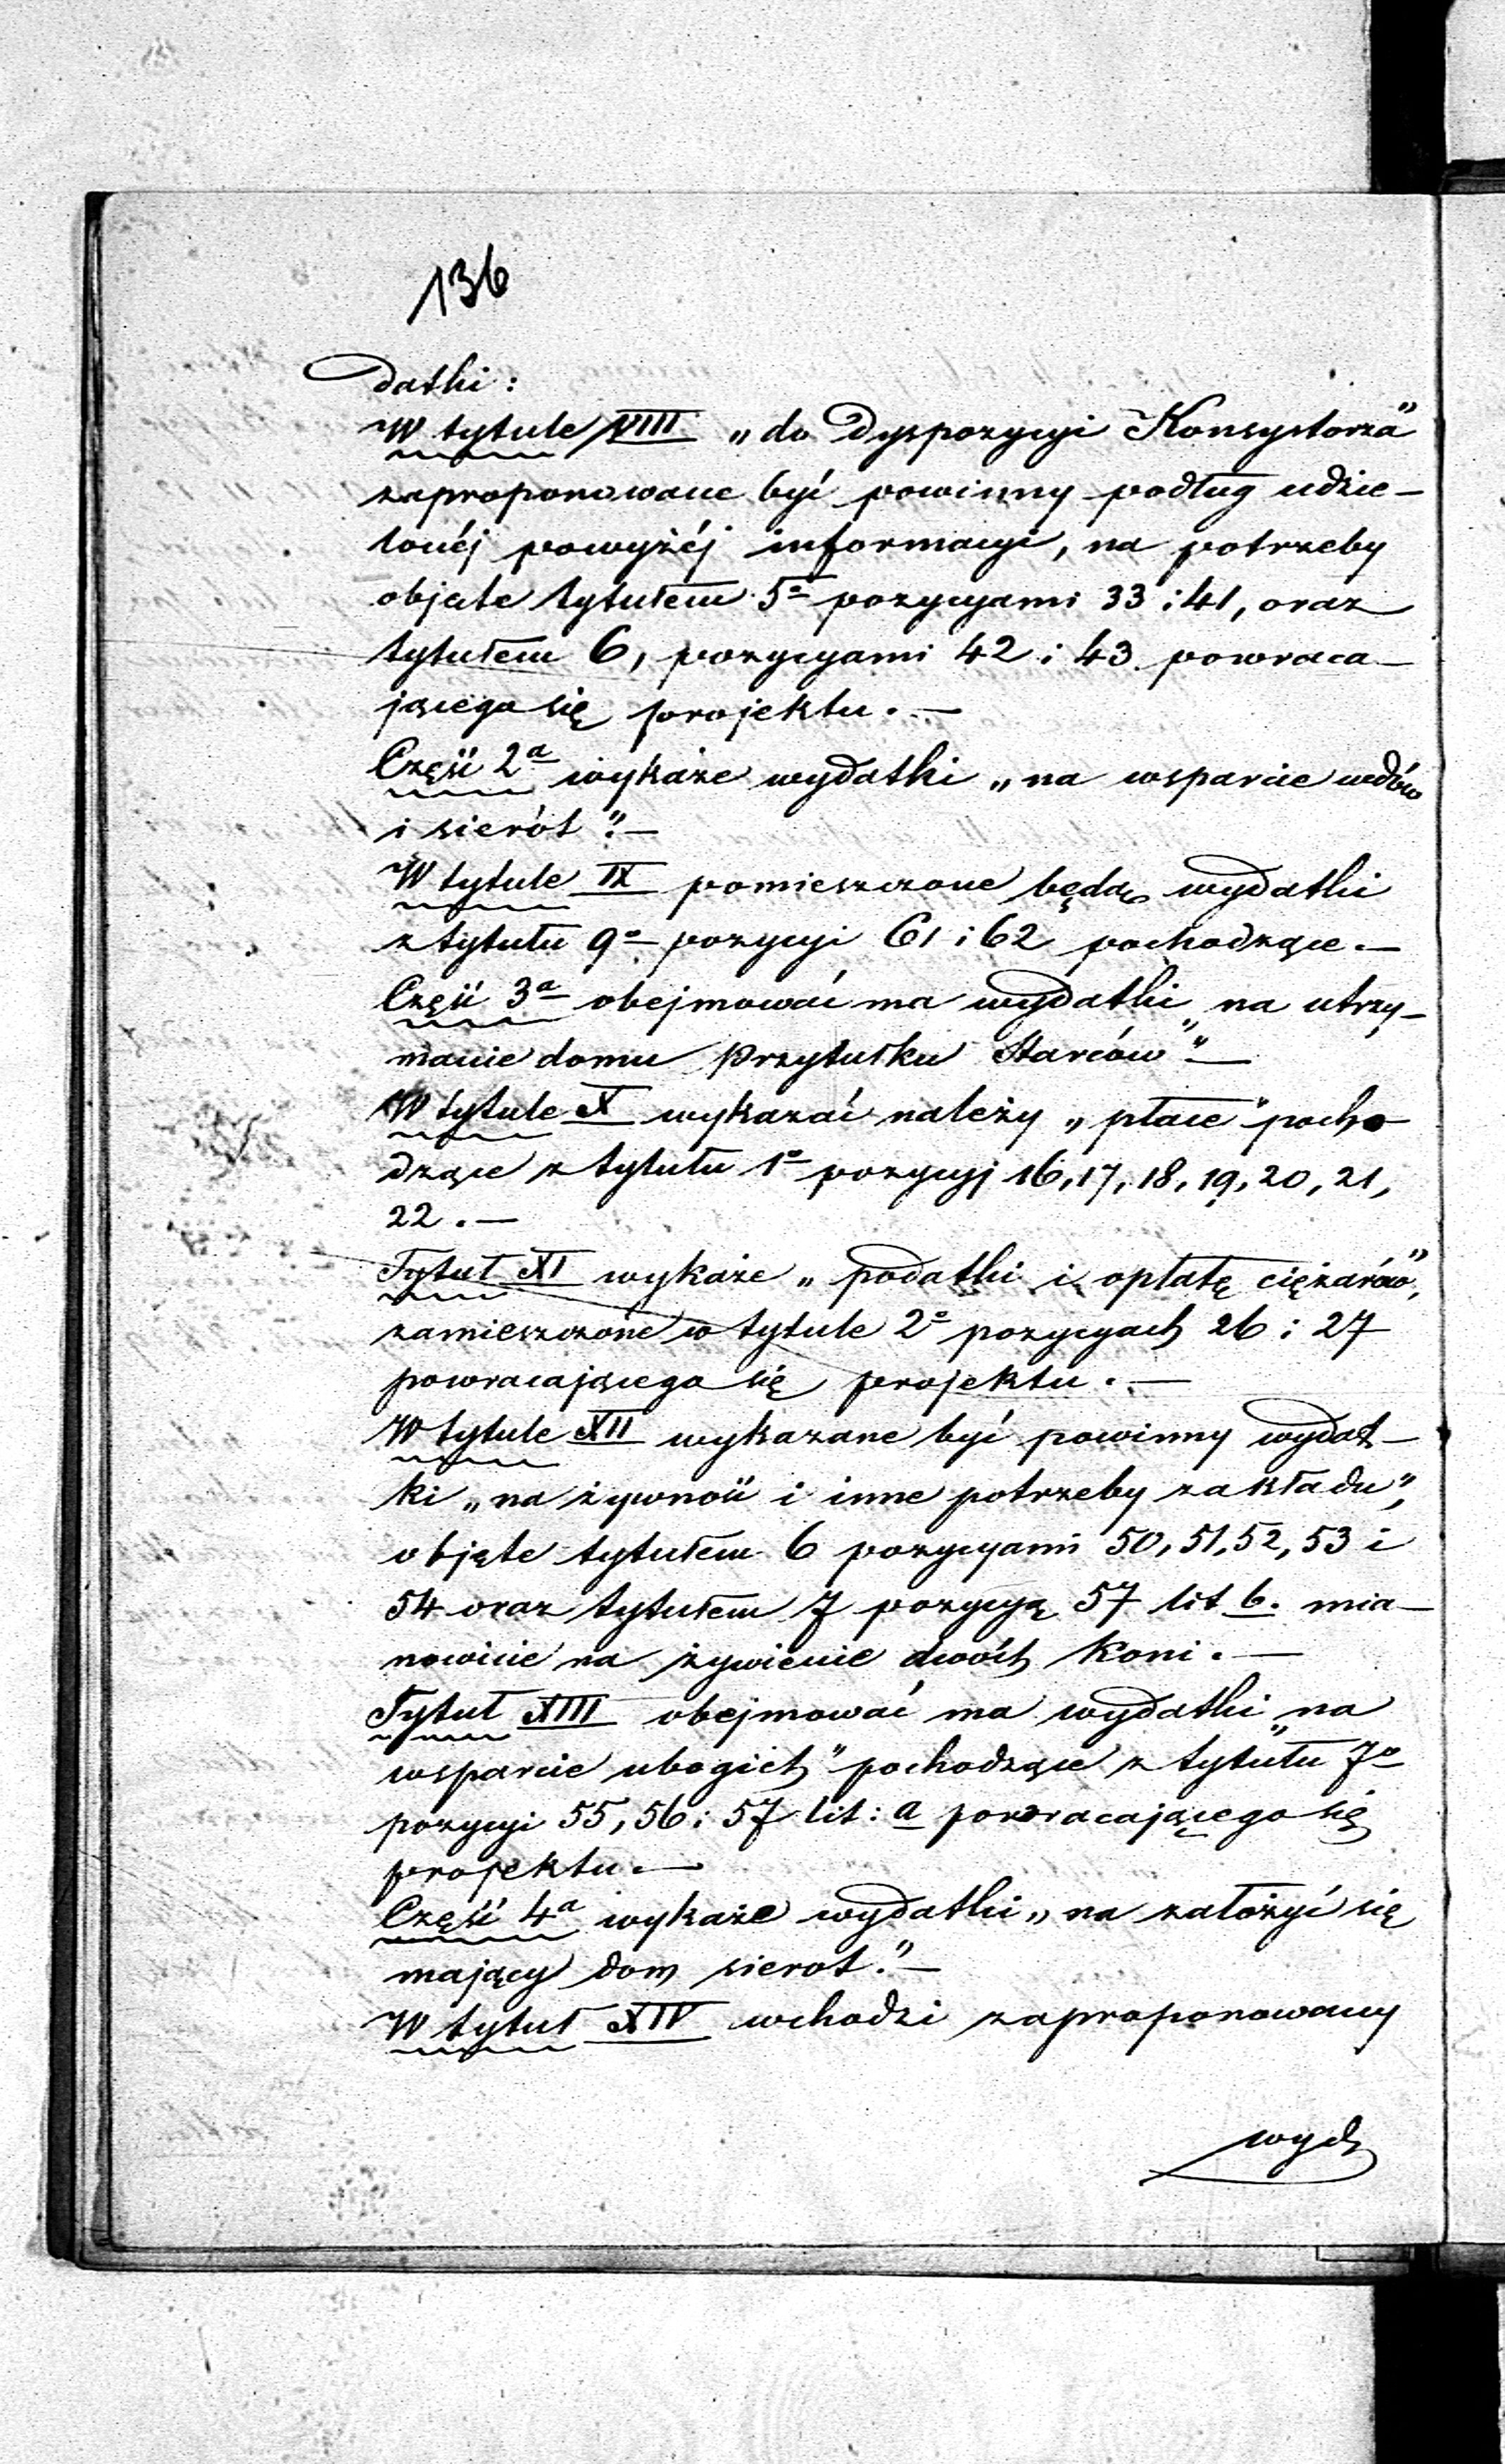 136
datki:
W tytule VIII „do dyspozycyi Konsystorza”
zaproponowane być powinny podług udzie-
lonéj powyżéj informacyi, na potrzeby
objęte tytułem 5º pozycyami 33 i 41, oraz
tytułem 6, pozycyami 42 i 43. powraca-
jącego się projektu.—
Część 2ª wykaże wydatki „na wsparcie wdów
i sierót”.—
W tytule IX pomieszczone będą wydatki
z tytułu 9º pozycyi 61 i 62 pochodzące.—
Część 3ª obejmować ma wydatki „na utrzy-
manie domu przytułku Starców”—
W tytule X wykazać należy „płace” pocho-
dzące z tytułu 1º pozycyj 16, 17, 18, 19, 20, 21,
22.—
Tytuł XI wykaże „podatki i opłatę ciężarów”,
zamieszczone w tytule 2º pozycyach 26 i 27
powracającego się projektu.—
W tytule XII wykazane być powinny wydat-
ki „na żywność i inne potrzeby zakładu”,
objęte tytułem 6 pozycyami 50, 51, 52, 53 i
54 oraz tytułem 7 pozycyą 57 lit b. mia-
nowicie na żywienie dwóch koni.—
Tytuł XIII obejmować ma wydatki „na
wsparcie ubogich” pochodzące z tytułu 7º
pozycyi 55, 56 i 57 lit: a powracającego się
projektu.—
Część 4ª wykaże wydatki „na założyć się
mający dom sierot.”—
W tytuł XIV wchodzi zaproponowany
wyd